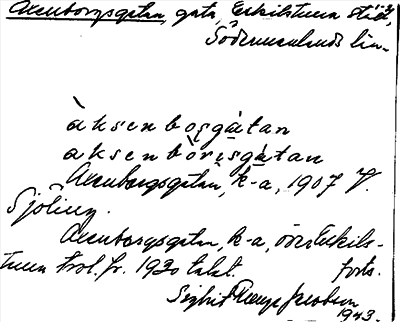 Axenborgsgatan, gata, Eskilstuna stad,
Södermanlands län.
àksenbosgàtan
aksenbòrisgàtan
Axenborgsgatan, k-a, 1907 V.
Sjöling.
Axenborgsgatan, k-a, över Eskils-
tuna trol. fr. 1930 talet. forts.
Sigbrit Plaenge Jacobson
1943.